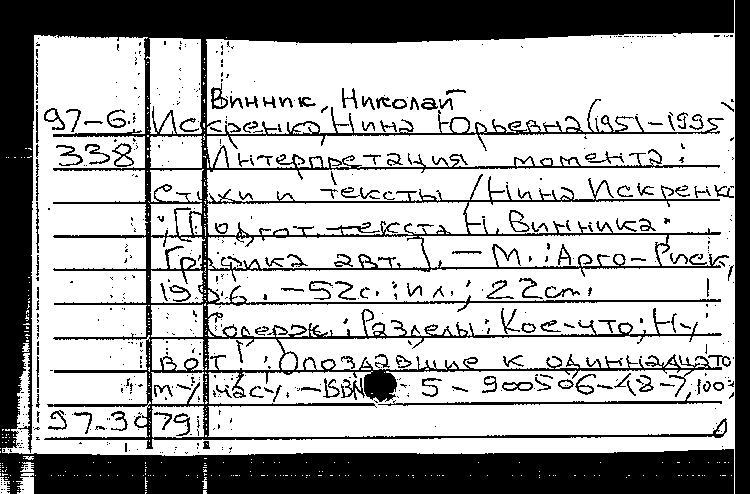 Винник, Николай
97-6. Искренко, Нина Юрьевна (1951-1995
338 Интерпретация момента:
стихи и тексты / Нина Искренко
; [Подгот. текста Н. Винника;
Графика авт.]. — М. : Арго-Риск,
1996. - 52с. : ил. ; 22 cm.
Содерж.: Разделы: Кое-что; Ну
вот! ; Опоздавшие к одиннадцато
му часу. — ISBN 5-900506-48-7, 100э
97-3079